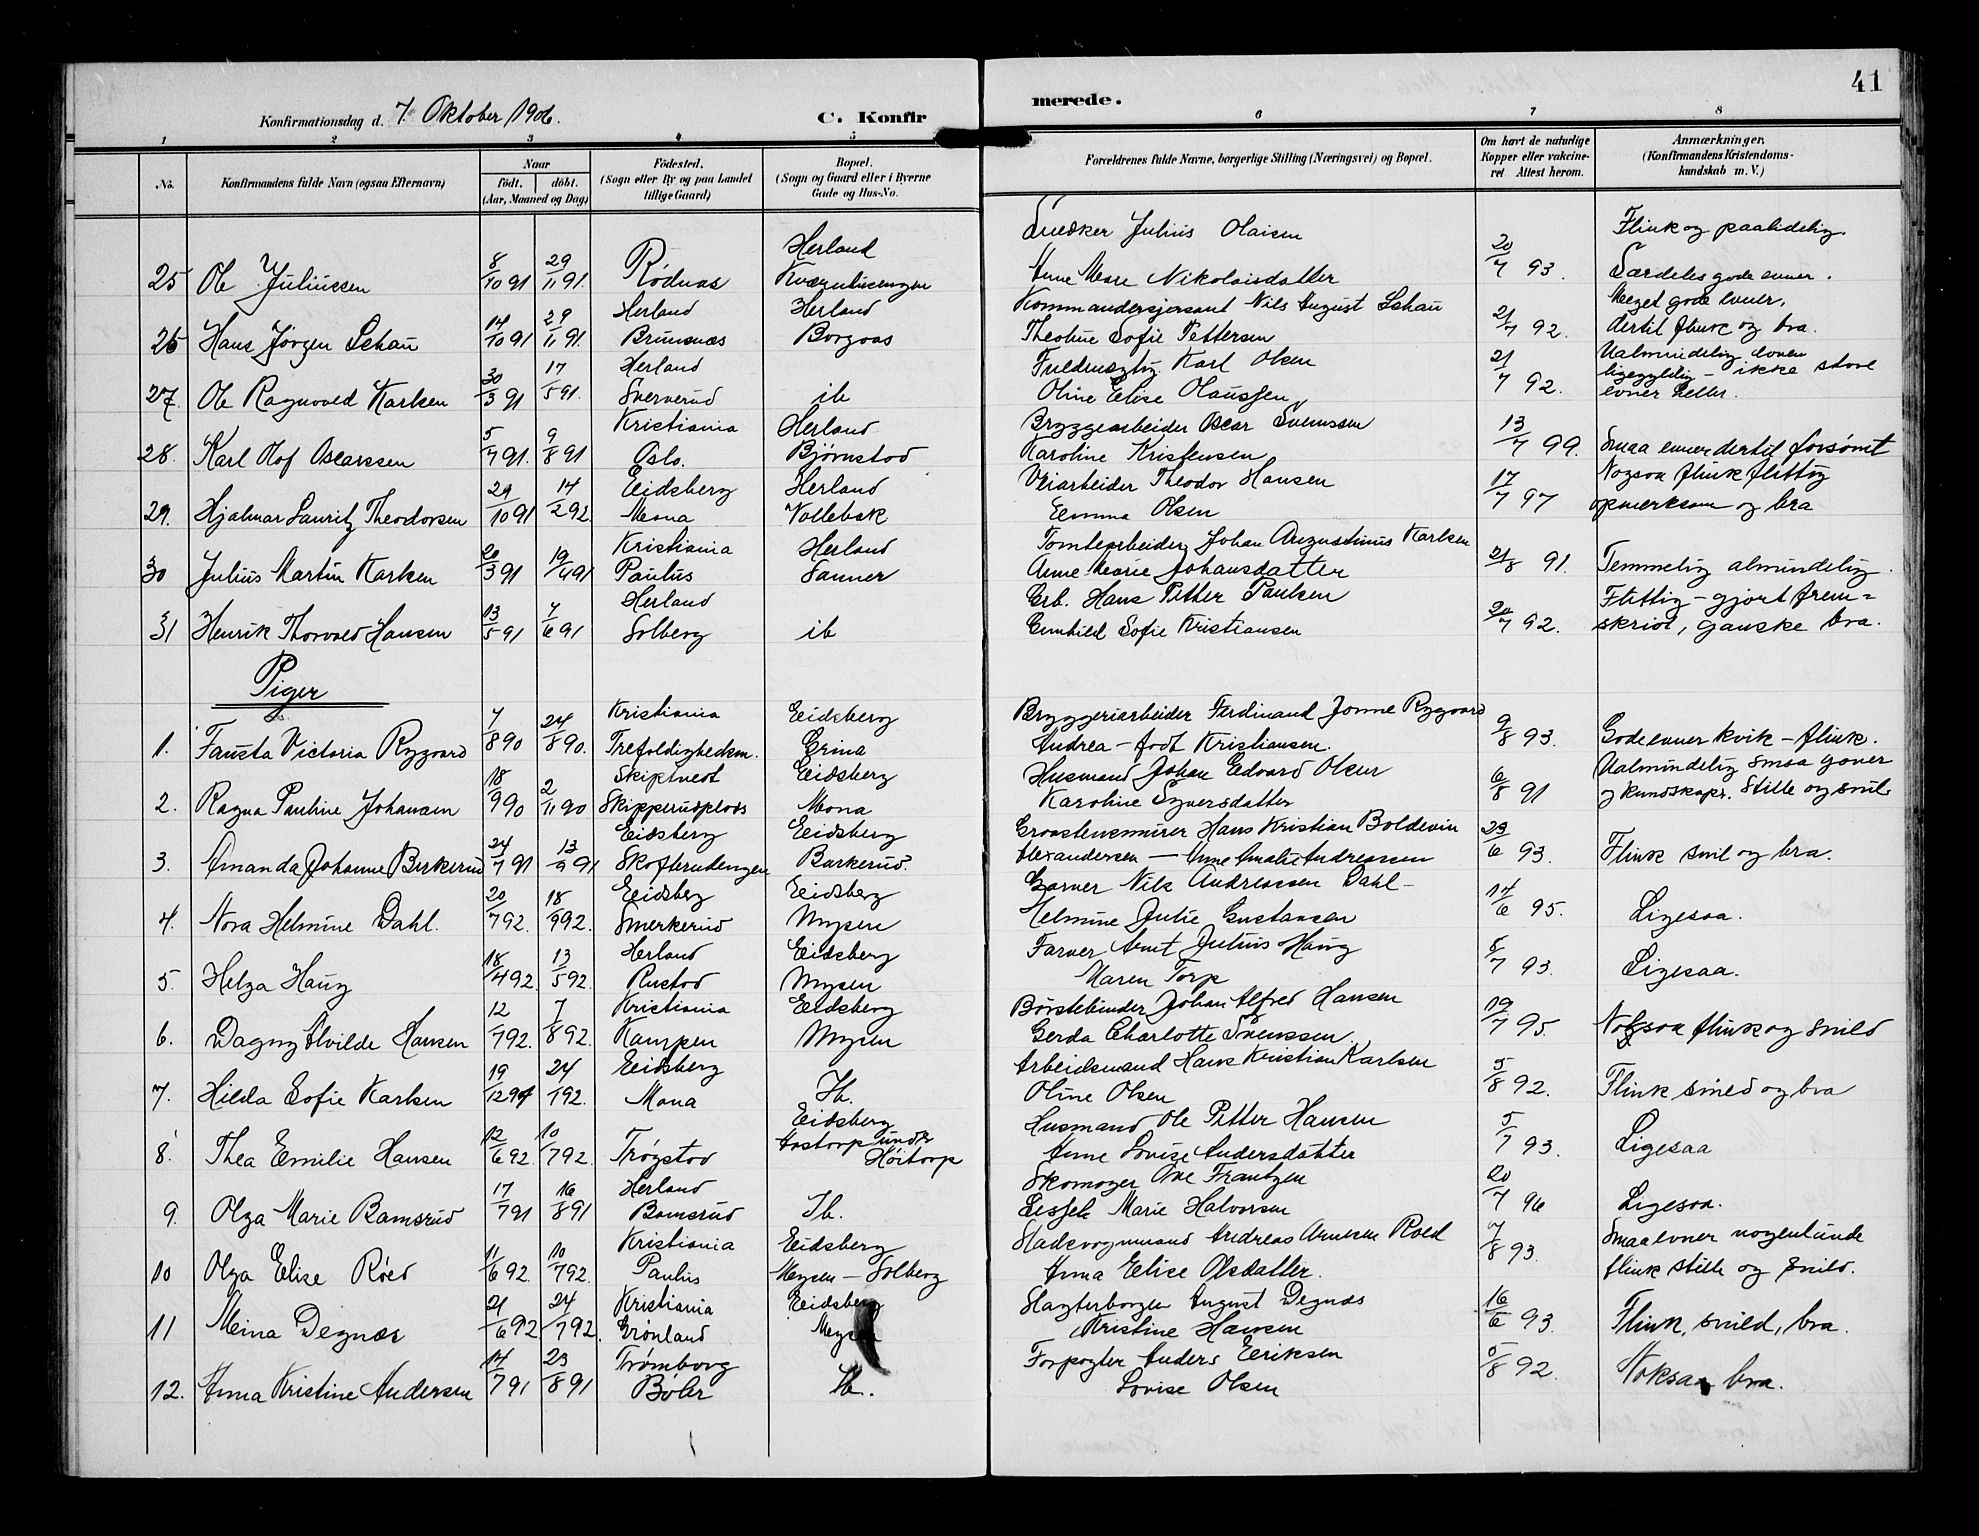 41
Konfirmationsdag d. 7. Oktober 1906. C. Konfir merede.
1 2 3 4 5 6 7 8
No. Konfirmandens fulde Navn (ogsaa Efternavn)
Naar født. døbt. (Aar, Maaned og Dag)
Fødested. (Sogn eller By og paa Landet tillige Gaard)
Bopæl. (Sogn og Gaard eller i Byerne Gade og Hus-No.
Forældrenes fulde Navne, borgerlige Stilling (Næringsvei) og Bopæl.
Om havt de naturlige Kopper eller vaccineret Attest herom.
Anmærkninger. (Konfirmandens Kristendomskundskab m. V.)
Herland Snedker Julius Olaisen Flink og paalidelig.
25 Ole Juliussen 8/10 91 29/11 91. Rødnæs Anne Marie Nikolaisdatter 20/7 93. Særdeles gode evner.
Herland Herland Kommandersjersant Nils August Schau Meget gode evner,
26 Hans Jørgen Schau 14/10 91 29/11 91. Brunsnæs Borgaas Theoline Sofie Pettersen 21/7 92. dertil flink og bra.
Herland Karl Olsen Ualmindelig doven
27. Ole Ragnvald Karlsen 30/3 91 17/5 91. Sververud ib Oline Elise Olaussen 21/7 92. ligegyldig – ikke store evner heller.
Kristiania Herland Bryggearbeider Oscar Svenssen
28. Karl Olof Oscarssen 5/7 91. 9/8 91 Oslo. Bjørnstad Karoline Kristensen 13/7 99. Smaa evner dertil forsømt
Eidsberg Herland Veiarbeider Theodor Hansen Nogsaa flink flittig
29. Hjalmar Lauritz Theodorsen 29/10 91 14/2 92. Mona Vollebæk Emma Olsen 17/7 97 opmerksom og bra
Kristiania Herland Tomtearbeider Johan Augustinus Karlsen
30 Julius Martin Karlsen 20/3 91 19/4 91 Paulus Sanner Anne Marie Johansdatter 21/8 91. Temmelig almindelig.
Herland Grb. Hans Petter Paulsen Flittig – gjort frem=
31 Henrik Thorvald Hansen 13/5 91 7/6 91 Solberg ib Gunhild Sofie Kristiansen 20/7 92. skridt, ganske bra.
Piger
Kristiania Eidsberg Bryggeriarbeider Ferdinand Jonne Rygaard
1. Fausta Victoria Rygaard 7/8 90 24/8 90. Trefoldigheden. Grina Andrea – født Kristiansen. 9/8 93. Gode evner kvik – flink.
Skiptvedt Eidsberg Husmand Johan Edvard Olsen Ualmindelig smaa gaver
2. Ragna Pauline Johansen 18/9 90 2/11 90 Skipperudplads Mona Karoline Syversdatter 6/8 91 og kundskaper. Stille og snil
Eidsberg Eidsberg Graastensmurer Hans Kristian Boldevin
3. Amanda Johanne Birkerud 24/7 91 13/9 91 Skofterudengen Barkerud. Alexandersen — Anne Amalie Andreassen 23/6 93. Flink snil og bra.
Eidsberg Eidsberg Garver Nils Andreassen Dahl –
4. Nora Helmine Dahl. 20/7 92. 18/9 92. Smerkerud Mysen Helmine Julie Gustavsen 14/6 95. Ligesaa.
Herland Eidsberg Farver Arnt Julius Haug
5. Helga Haug 18/4 92. 13/5 92. Rustad Mysen Maren Torp 5/7 93. Ligesaa.
Kristiania Eidsberg Børstebinder Johan Alfred Hansen
6. Dagny Alvilde Hansen 12/7 92. 7/8 92. Kampen Mysen Gerda Charlotte Svenssen 19/7 95 Nogsaa flink og snild
Eidsberg Arbeidsmand Hans Kristian Karlsen
7. Hilda Sofie Karlsen 19/12 91 24/1 92. Mona Ib. Oline Olsen 5/8 92. Flink snild og bra
Eidsberg Husmand Ole Petter Hansen
8. Thea Emilie Hansen 12/6 92. 10/7 92. Trøgstad Aastorp under Høitorp Anne Lovise Andersdatter 5/7 93. Ligesaa
Herland Skomager Ove Frantzen
9. Olga Marie Ramsrud 17/7 91 16/8 91 Ramsrud Ib. Marie Halvorsen 20/7 96 Ligesaa.
Kristiania Eidsberg Stadsvognmand Andreas Arnesen Roed Smaa evner nogenlunde
10 Olga Elise Røed 11/6 92. 10/7 92. Paulus Mysen – Solberg Anna Elise Olsdatter. 7/8 93. flink stille og snild.
Kristiania Eidsberg August Degnæs
11 Meina Degnæs 21/6 92 24/7 92. Grønland Mysen Kristine Hansen 16/6 93. Flink, snild, bra.
Trømborg Forpagter Anders Eriksen
12. Anna Kristine Andersen 14/7 91 23/8 91 Bøler Ib. Lovise Olsen 5/8 92. Noksaa bra.